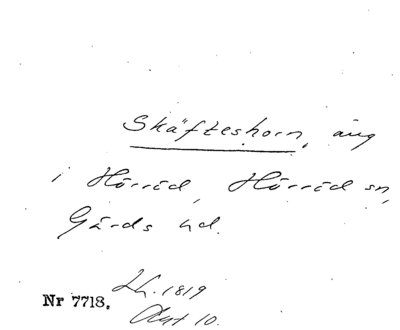 Skäfteshorn, äng
i Hörröd, Hörröd sn,
Gärds hd.
Lh. 1819
Nr 7718.
Akt 10.